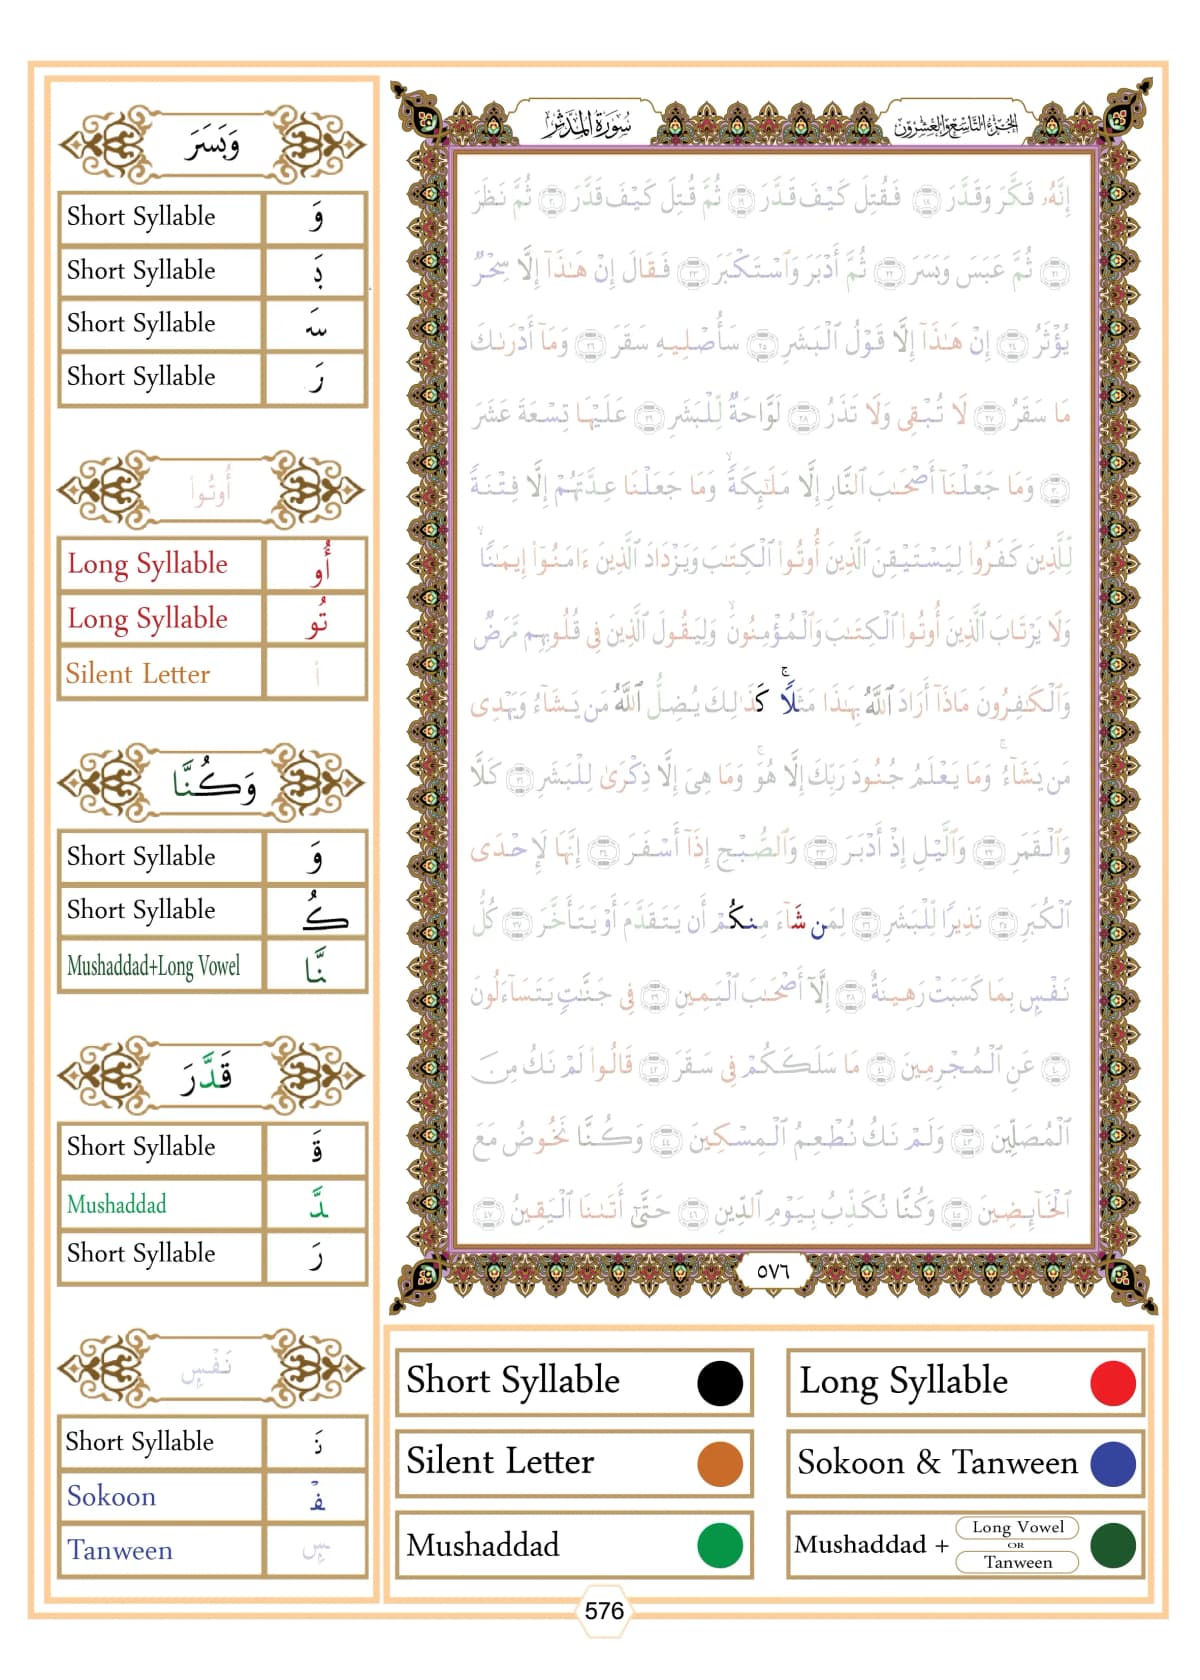 وَبَسَرَ
Short Syllable وَ
Short Syllable بَ
Short Syllable سَ
Short Syllable رَ
أُوتُوا۟
Long Syllable أُو
Long Syllable تُو
Silent Letter ا۟
وَكُنَّا
Short Syllable وَ
Short Syllable كُ
Mushaddad+Long Vowel نَّا
قَدَّرَ
Short Syllable قَ
Mushaddad دَّ
Short Syllable رَ
نَفْسٍ
Short Syllable نَ
Sokoon فْ
Tanween سٍ
سُورَةُ المُدَّثِّر
الجُزءُ التَّاسِعُ وَالعِشرُونَ
إِنَّهُۥ فَكَّرَ وَقَدَّرَ ١٨ فَقُتِلَ كَيْفَ قَدَّرَ ١٩ ثُمَّ قُتِلَ كَيْفَ قَدَّرَ ٢٠ ثُمَّ نَظَرَ
٢١ ثُمَّ عَبَسَ وَبَسَرَ ٢٢ ثُمَّ أَدْبَرَ وَٱسْتَكْبَرَ ٢٣ فَقَالَ إِنْ هَـٰذَآ إِلَّا سِحْرٌ
يُؤْثَرُ ٢٤ إِنْ هَـٰذَآ إِلَّا قَوْلُ ٱلْبَشَرِ ٢٥ سَأُصْلِيهِ سَقَرَ ٢٦ وَمَآ أَدْرَىٰكَ
مَا سَقَرُ ٢٧ لَا تُبْقِى وَلَا تَذَرُ ٢٨ لَوَّاحَةٌ لِّلْبَشَرِ ٢٩ عَلَيْهَا تِسْعَةَ عَشَرَ
٣٠ وَمَا جَعَلْنَآ أَصْحَـٰبَ ٱلنَّارِ إِلَّا مَلَـٰٓئِكَةً ۙ وَمَا جَعَلْنَا عِدَّتَهُمْ إِلَّا فِتْنَةً
لِّلَّذِينَ كَفَرُوا۟ لِيَسْتَيْقِنَ ٱلَّذِينَ أُوتُوا۟ ٱلْكِتَـٰبَ وَيَزْدَادَ ٱلَّذِينَ ءَامَنُوٓا۟ إِيمَـٰنًا ۙ
وَلَا يَرْتَابَ ٱلَّذِينَ أُوتُوا۟ ٱلْكِتَـٰبَ وَٱلْمُؤْمِنُونَ ۙ وَلِيَقُولَ ٱلَّذِينَ فِى قُلُوبِهِم مَّرَضٌ
وَٱلْكَـٰفِرُونَ مَاذَآ أَرَادَ ٱللَّهُ بِهَـٰذَا مَثَلًا ۚ كَذَٰلِكَ يُضِلُّ ٱللَّهُ مَن يَشَآءُ وَيَهْدِى
مَن يَشَآءُ ۚ وَمَا يَعْلَمُ جُنُودَ رَبِّكَ إِلَّا هُوَ ۚ وَمَا هِىَ إِلَّا ذِكْرَىٰ لِلْبَشَرِ ٣١ كَلَّا
وَٱلْقَمَرِ ٣٢ وَٱلَّيْلِ إِذْ أَدْبَرَ ٣٣ وَٱلصُّبْحِ إِذَآ أَسْفَرَ ٣٤ إِنَّهَا لَإِحْدَى
ٱلْكُبَرِ ٣٥ نَذِيرًا لِّلْبَشَرِ ٣٦ لِمَن شَآءَ مِنكُمْ أَن يَتَقَدَّمَ أَوْ يَتَأَخَّرَ ٣٧ كُلُّ
نَفْسٍۭ بِمَا كَسَبَتْ رَهِينَةٌ ٣٨ إِلَّآ أَصْحَـٰبَ ٱلْيَمِينِ ٣٩ فِى جَنَّـٰتٍ يَتَسَآءَلُونَ
٤٠ عَنِ ٱلْمُجْرِمِينَ ٤١ مَا سَلَكَكُمْ فِى سَقَرَ ٤٢ قَالُوا۟ لَمْ نَكُ مِنَ
ٱلْمُصَلِّينَ ٤٣ وَلَمْ نَكُ نُطْعِمُ ٱلْمِسْكِينَ ٤٤ وَكُنَّا نَخُوضُ مَعَ
ٱلْخَآئِضِينَ ٤٥ وَكُنَّا نُكَذِّبُ بِيَوْمِ ٱلدِّينِ ٤٦ حَتَّىٰٓ أَتَىٰنَا ٱلْيَقِينُ ٤٧
٥٧٦
Short Syllable
Long Syllable
Silent Letter
Sokoon & Tanween
Mushaddad
Mushaddad + Long Vowel OR Tanween
576